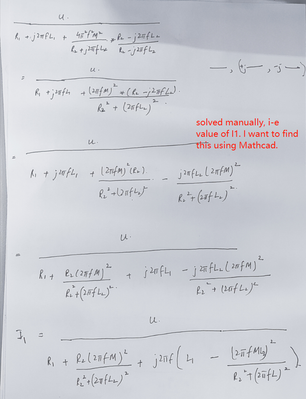 u
R₁ + j2πfL₁ + 4π²f²M² / R₂ + j2πfL₂ * R₂ - j2πfL₂ / R₂ - j2πfL₂
= u
R₁ + j2πfL₁ + (2πfM)² * (R₂ - j2πfL₂) / R₂² + (2πfL₂)²
solved manually, i-e
value of I1. I want to find
this using Mathcad.
= u
R₁ + j2πfL₁ + (2πfM)² (R₂) / R₂² + (2πfL₂)² - j2πfL₂ (2πfM)² / R₂² + (2πfL₂)²
= u
R₁ + R₂ (2πfM)² / R₂² + (2πfL₂)² + j2πfL₁ - j2πfL₂ (2πfM)² / R₂² + (2πfL₂)²
I₁ = u
R₁ + R₂ (2πfM)² / R₂² + (2πfL₂)²